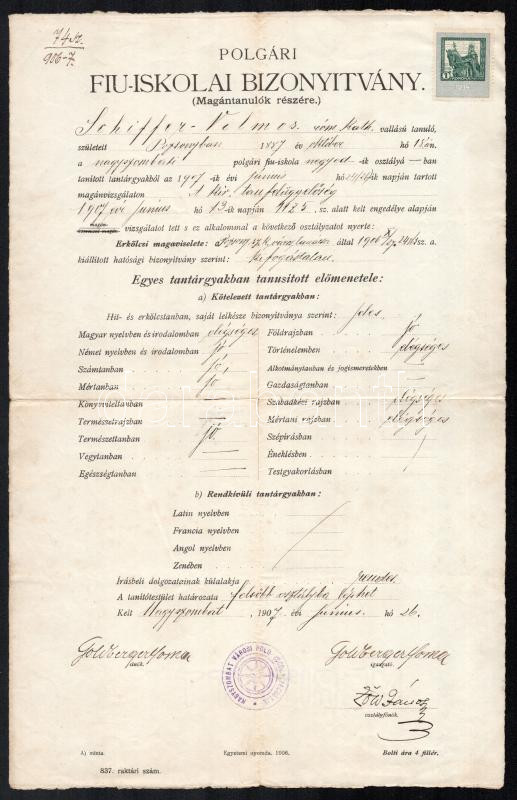 74 sz.
906-7.
POLGÁRI
FIU-ISKOLAI BIZONYITVÁNY.
(Magántanulók részére.)
Schiffer Vilmos róm. kath. vallású tanuló,
született Pozsonyban 1887 év október hó 18án.
a nagyszombati polgári fiu-iskola negyedik osztályá-ban
tanított tantárgyakból az 1907-ik évi június hó napján tartott
magánvizsgálaton A kir. tanfelügyelőség
1907 évi június hó 13-ik napján 1125 sz. alatt kelt engedélye alapján
vizsgálatot tett s ez alkalommal a következő osztályzatot nyerte:
Erkölcsi magaviselete: által 190 sz. a.
kiállított hatósági bizonyítvány szerint: kifogástalan.
Egyes tantárgyakban tanusított előmenetele:
a) Kötelezett tantárgyakban:
Hit- és erkölcstanban, saját lelkésze bizonyítványa szerint: jeles
Magyar nyelvben és irodalomban elégséges
Német nyelvben és irodalomban jó
Számtanban jó
Mértanban jó
Könyvviteltanban —
Természetrajzban —
Természettanban jó
Vegytanban —
Egészségtanban —
Földrajzban jó
Történelemben elégséges
Alkotmánytanban és jogismeretekben —
Gazdaságtanban —
Szabadkézi rajzban elégséges
Mértani rajzban elégséges
Szépírásban
Éneklésben
Testgyakorlásban
b) Rendkívüli tantárgyakban:
Latin nyelvben
Francia nyelvben
Angol nyelvben
Zenében
Írásbeli dolgozatainak külalakja rendes.
A tanítótestület határozata felsőbb osztályba léphet
Kelt Nagyszombat, 1907 évi június hó 26.
Goldberger Soma
elnök.
Goldberger Soma
igazgató.
Löw János
osztályfőnök.
A) minta.
Egyetemi nyomda, 1906.
Bolti ára 4 fillér.
837. raktári szám.